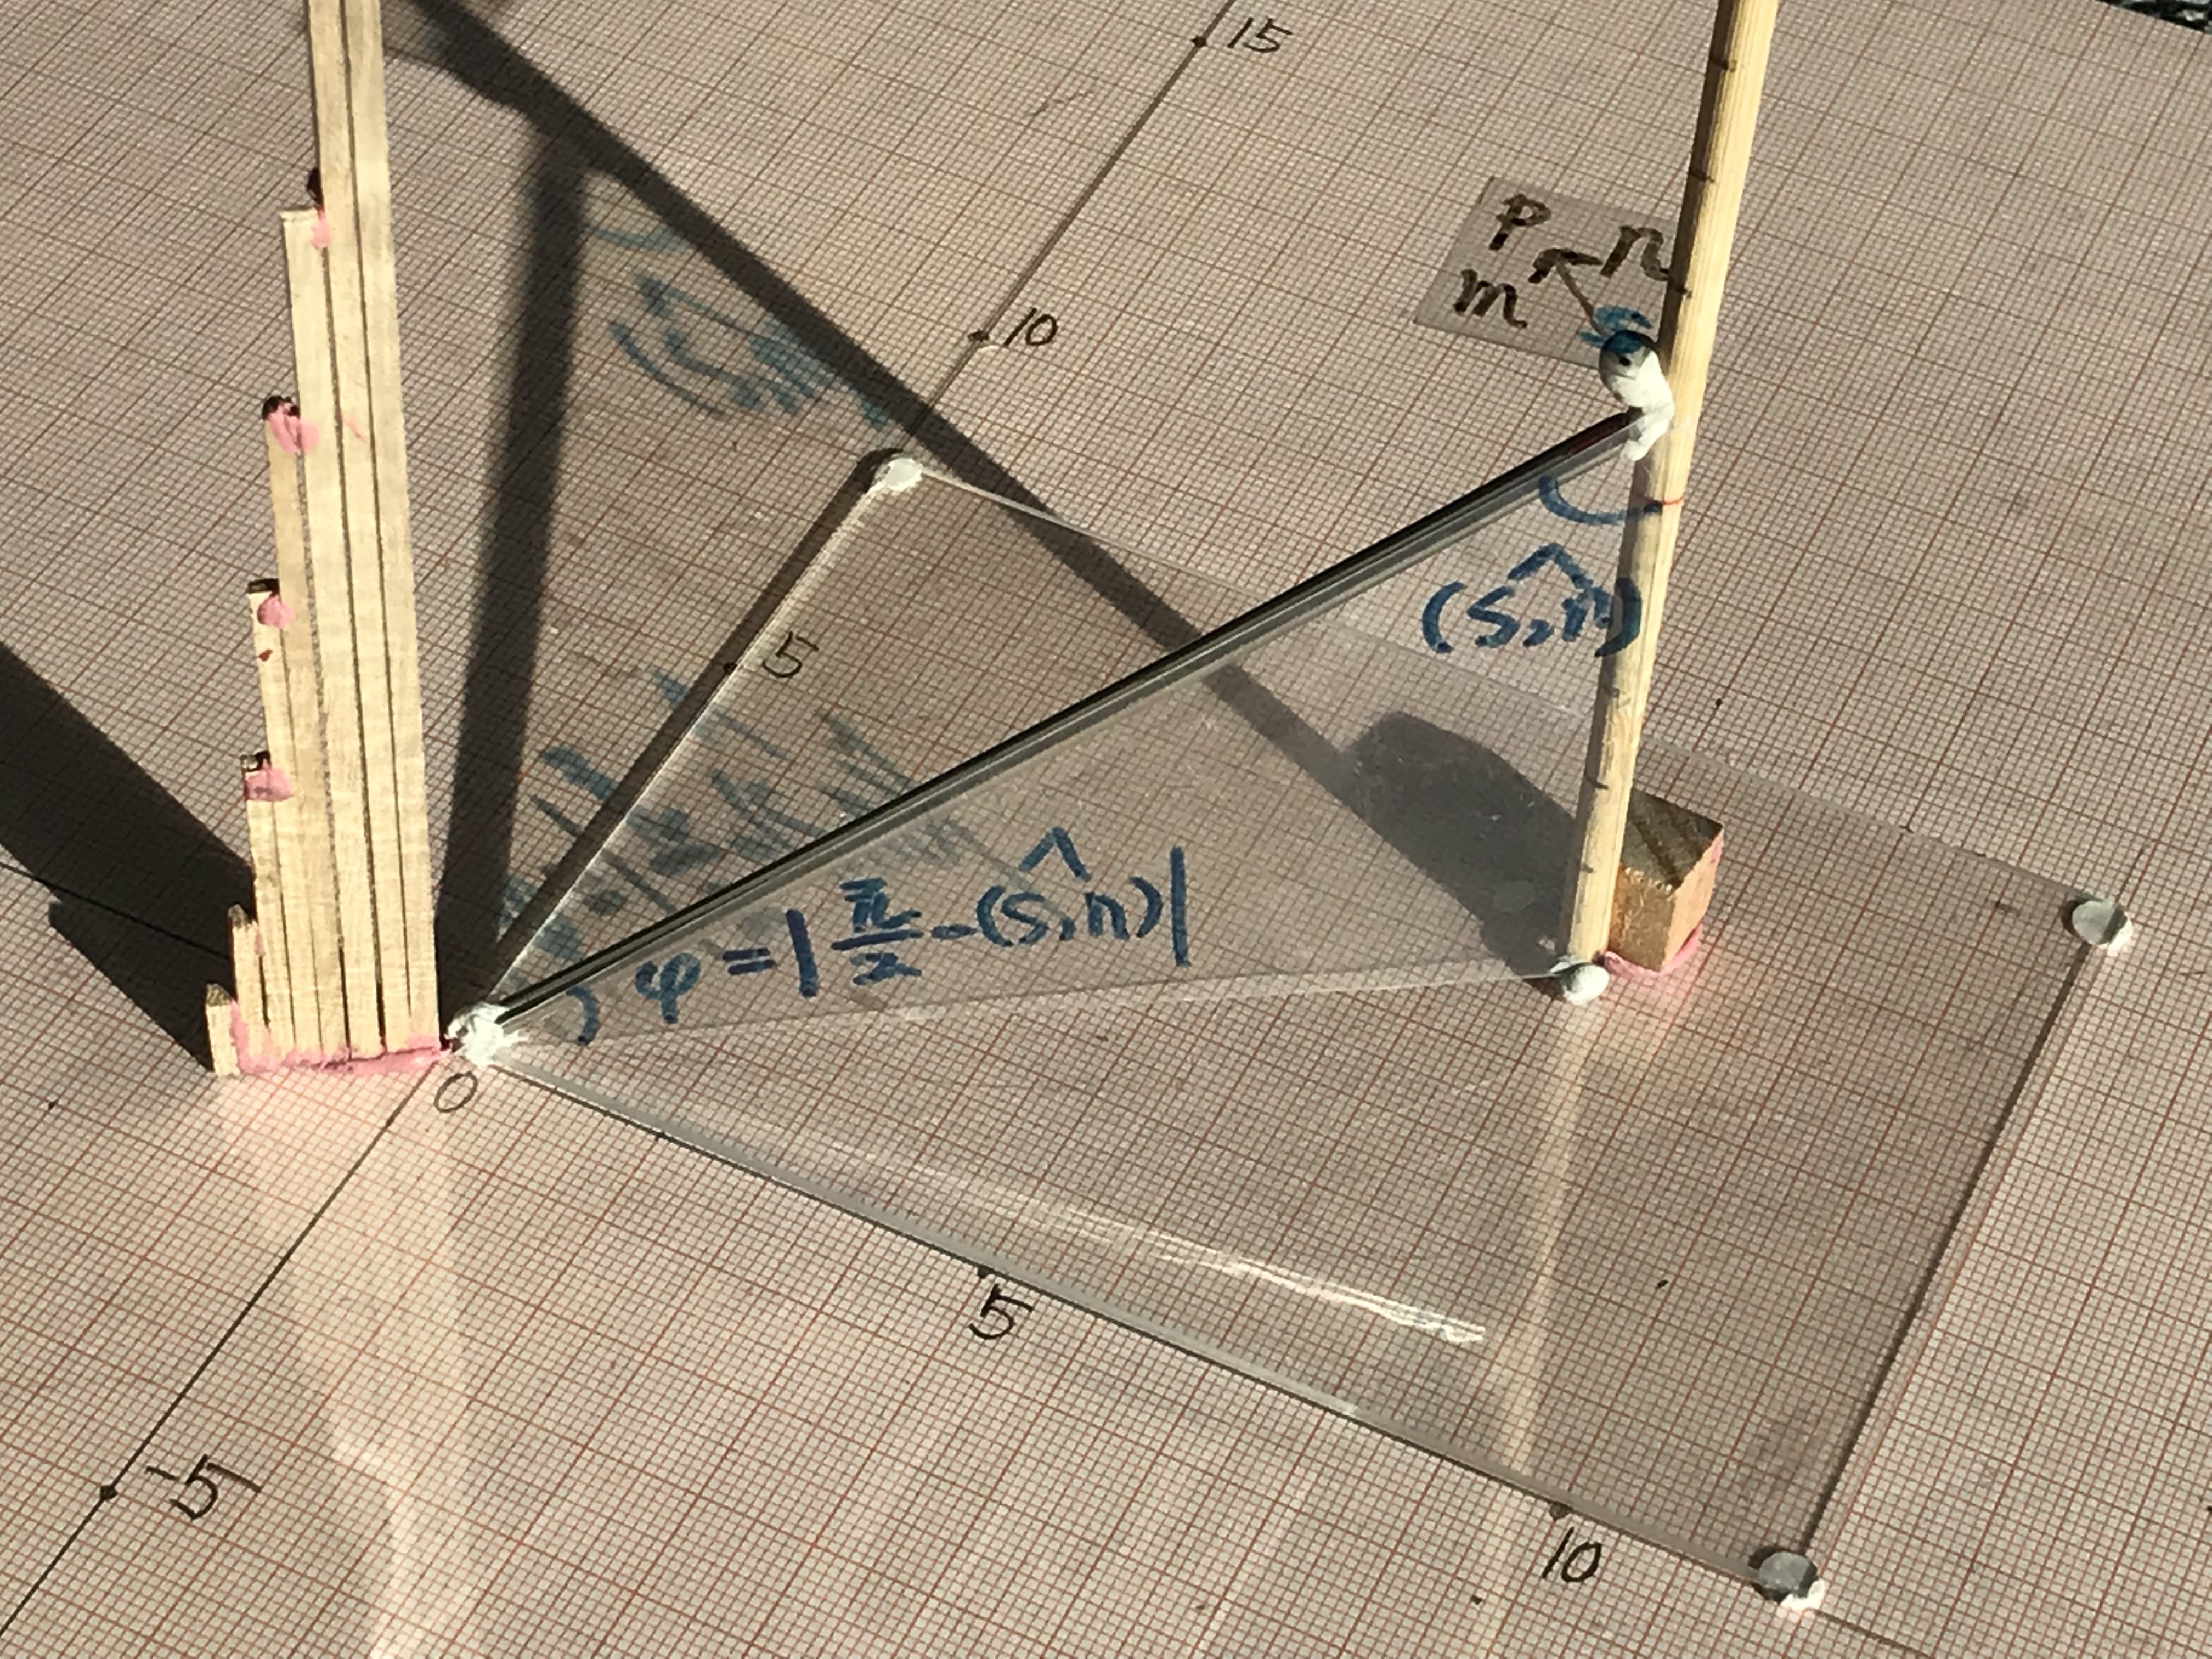 15
P n
m
10
(S,n)
5
φ=|π/2-(S,n)|
0
5
-5
10